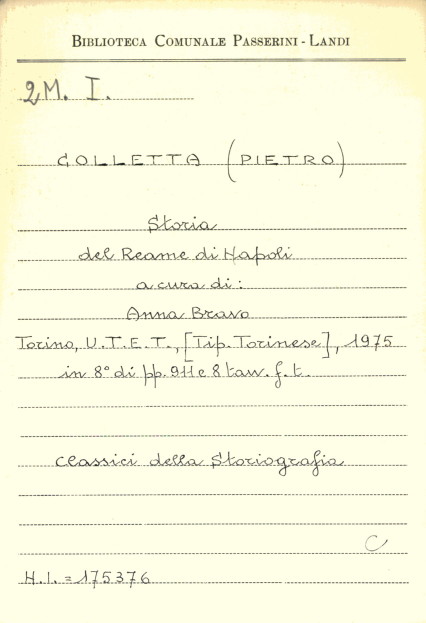 BIBLIOTECA COMUNALE PASSERINI - LANDI
2M. I.
COLLETTA (PIETRO)
Storia
del Reame di Napoli
a cura di:
Anna Bravo
Torino, U.T.E.T., [Tip. Torinese], 1975
in 8° di pp. 911 e 8 tavv. f. t.
Classici della Storiografia
C
N.I. = 175376